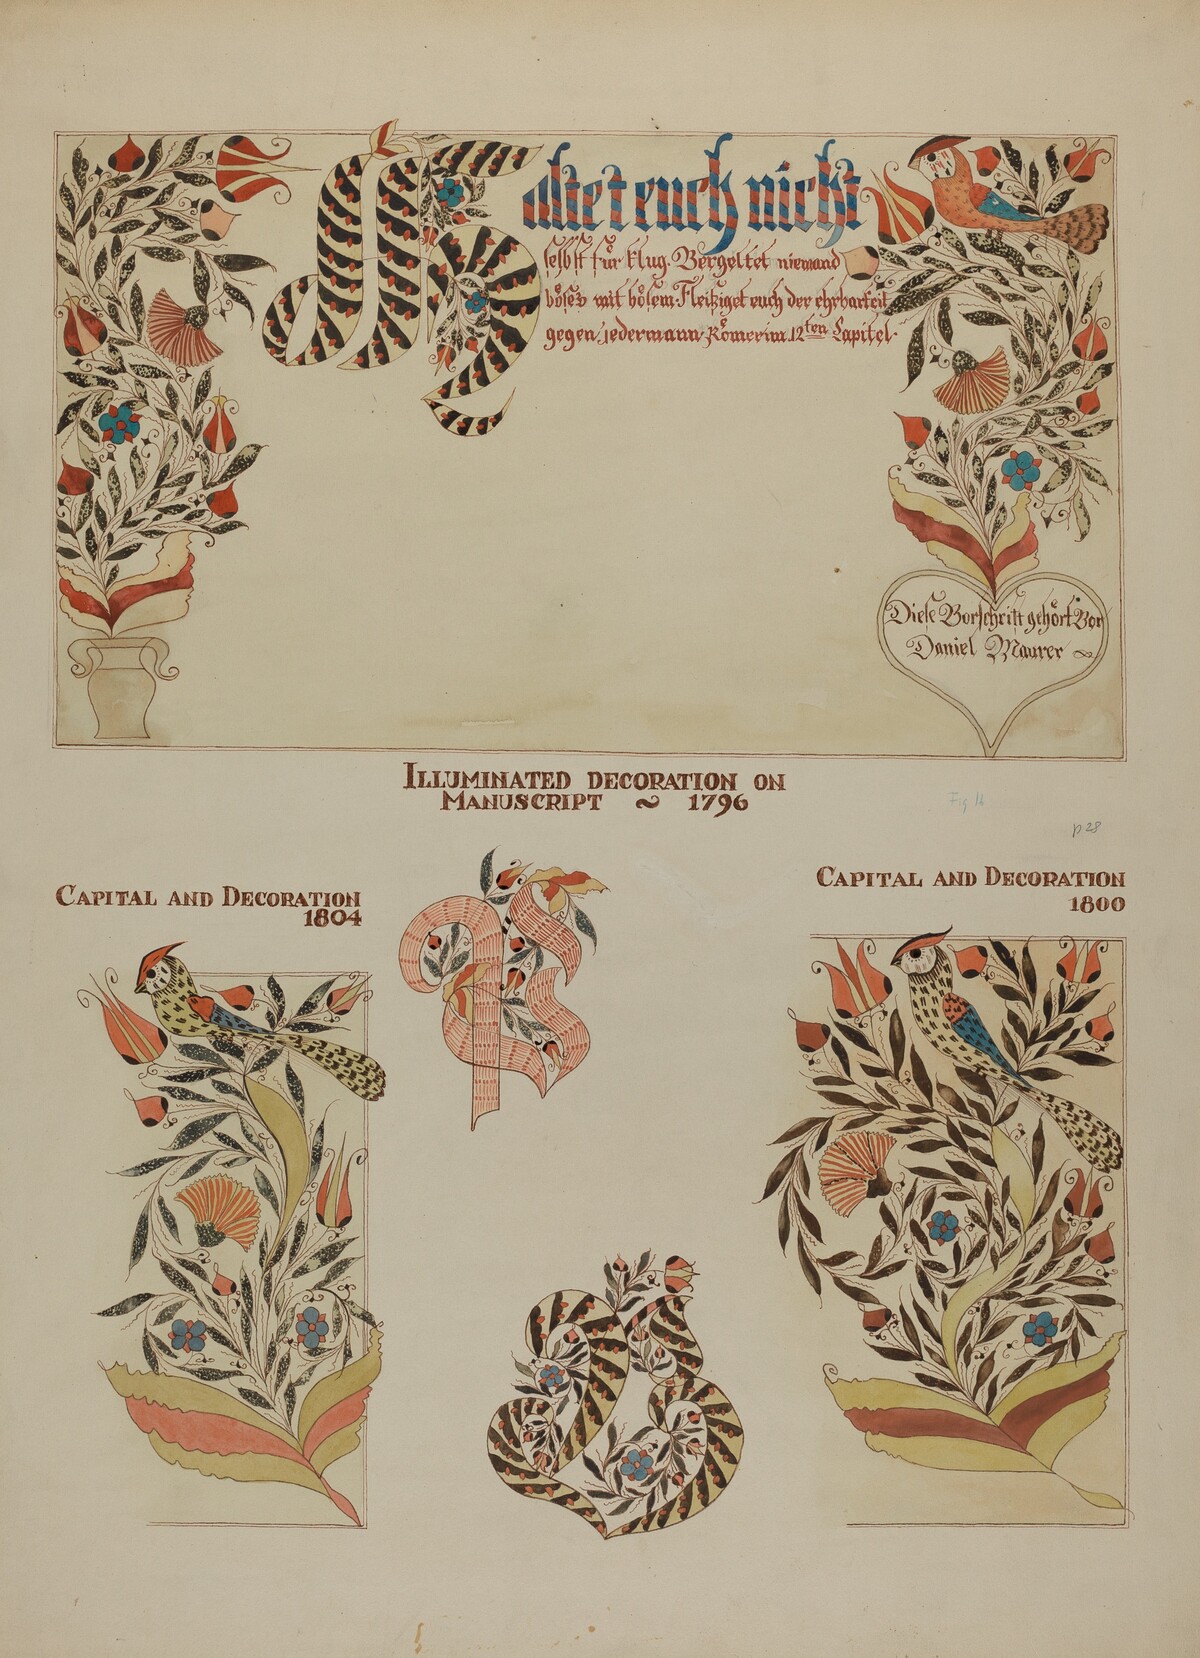 Haltet euch nicht
selbst für klug. Vergeltet niemand
böses mit bösem. Fleisziget euch der ehrbarkeit
gegen jedermann. Römer im 12ten Capitel.
Diese Vorschrift gehört Vor
Daniel Maurer ~
ILLUMINATED DECORATION ON
MANUSCRIPT ~ 1796
Fig 16
p 28
CAPITAL AND DECORATION
1804
CAPITAL AND DECORATION
1800